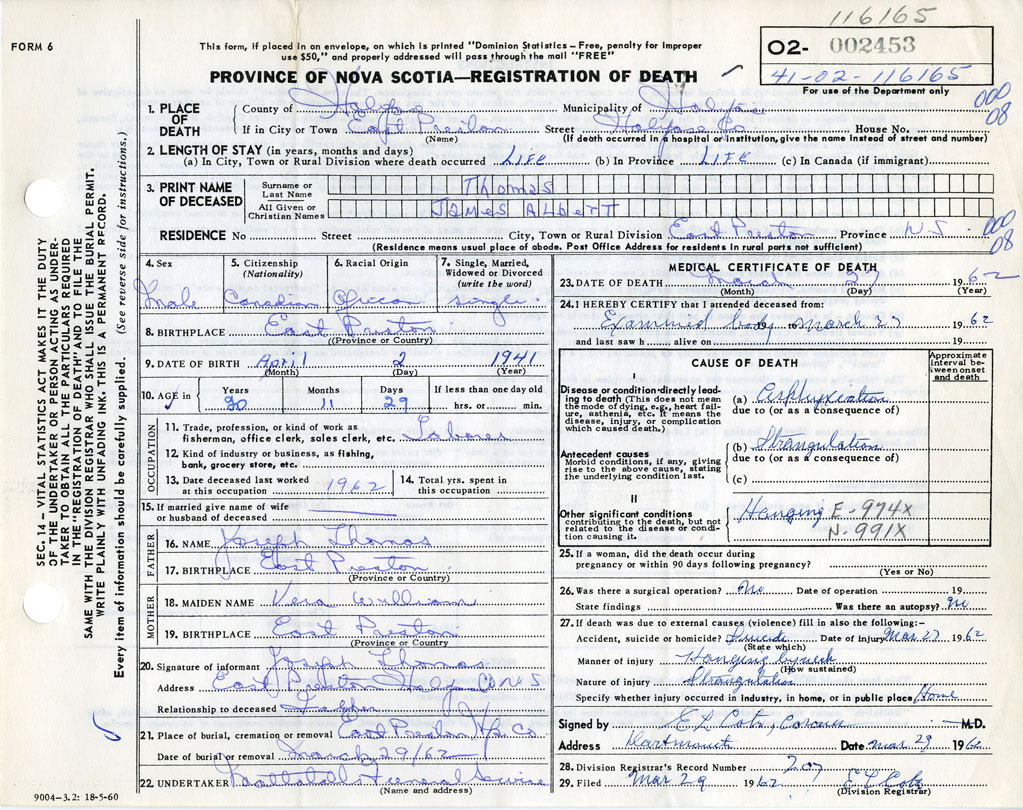 116165
FORM 6
This form, if placed in an envelope, on which is printed "Dominion Statistics – Free, penalty for improper
use $50," and properly addressed will pass through the mail "FREE"
O2- 002453
41-02-116165
For use of the Department only
PROVINCE OF NOVA SCOTIA—REGISTRATION OF DEATH
000
08
1. PLACE OF DEATH
County of Halifax Municipality of Halifax
If in City or Town East Preston Street Halifax Co House No.
(Name) (If death occurred in a hospital or institution, give the name instead of street and number)
2. LENGTH OF STAY (in years, months and days)
(a) In City, Town or Rural Division where death occurred LIFE (b) In Province LIFE (c) In Canada (if immigrant)
3. PRINT NAME OF DECEASED
Surname or Last Name Thomas
All Given or Christian Names JAMES ALBERT
RESIDENCE No Street City, Town or Rural Division East Preston Province N.S
(Residence means usual place of abode. Post Office Address for residents in rural parts not sufficient)
000
08
4. Sex 5. Citizenship (Nationality) 6. Racial Origin 7. Single, Married, Widowed or Divorced (write the word)
male Canadian African single.
8. BIRTHPLACE East Preston
(Province or Country)
9. DATE OF BIRTH April 2 1941
(Month) (Day) (Year)
10. AGE in Years Months Days If less than one day old
20 11 29 hrs. or min.
OCCUPATION
11. Trade, profession, or kind of work as
fisherman, office clerk, sales clerk, etc. Laborer
12. Kind of industry or business, as fishing,
bank, grocery store, etc.
13. Date deceased last worked at this occupation 1962 14. Total yrs. spent in this occupation
15. If married give name of wife
or husband of deceased
FATHER
16. NAME Joseph Thomas
17. BIRTHPLACE East Preston
(Province or Country)
MOTHER
18. MAIDEN NAME Vera William
19. BIRTHPLACE East Preston
(Province or Country)
20. Signature of informant Joseph Thomas
Address East Preston Halifax Co N S
Relationship to deceased Father
21. Place of burial, cremation or removal East Preston Hfx Co
Date of burial or removal March 29/62
22. UNDERTAKER Funeral Service
(Name and address)
9004-3.2: 18-5-60
MEDICAL CERTIFICATE OF DEATH
23. DATE OF DEATH March 27 1962
(Month) (Day) (Year)
24. I HEREBY CERTIFY that I attended deceased from:
Examined body 19 to March 27 1962
and last saw h alive on 19
CAUSE OF DEATH
Approximate interval between onset and death
I
Disease or condition directly leading to death (This does not mean the mode of dying, e.g., heart failure, asthenia, etc. It means the disease, injury, or complication which caused death.)
(a) Asphyxiation
due to (or as a consequence of)
Antecedent causes
Morbid conditions, if any, giving rise to the above cause, stating the underlying condition last.
(b) Strangulation
due to (or as a consequence of)
(c)
II
Other significant conditions
contributing to the death, but not related to the disease or condition causing it.
Hanging E-974X
N-991X
25. If a woman, did the death occur during
pregnancy or within 90 days following pregnancy?
(Yes or No)
26. Was there a surgical operation? No Date of operation 19
State findings Was there an autopsy? No
27. If death was due to external causes (violence) fill in also the following:–
Accident, suicide or homicide? Suicide Date of injury Mar 27 1962
(State which)
Manner of injury Hanging by neck
(How sustained)
Nature of injury Strangulation
Specify whether injury occurred in industry, in home, or in public place Home
Signed by Coroner M.D.
Address Dartmouth Date Mar 29 1962
28. Division Registrar's Record Number 207
29. Filed Mar 29 1962
(Division Registrar)
SEC. 14 – VITAL STATISTICS ACT MAKES IT THE DUTY
OF THE UNDERTAKER OR PERSON ACTING AS UNDER-
TAKER TO OBTAIN ALL THE PARTICULARS REQUIRED
IN THE "REGISTRATION OF DEATH" AND TO FILE THE
SAME WITH THE DIVISION REGISTRAR WHO SHALL ISSUE THE BURIAL PERMIT.
WRITE PLAINLY WITH UNFADING INK. THIS IS A PERMANENT RECORD.
Every item of information should be carefully supplied. (See reverse side for instructions.)